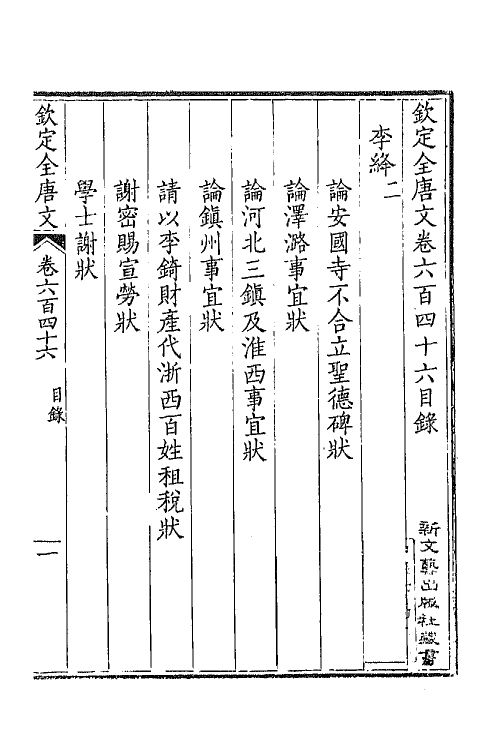 欽定全唐文卷六百四十六目錄
新文藝出版社藏書
李絳二
論安國寺不合立聖德碑狀
論澤潞事宜狀
論河北三鎭及淮西事宜狀
論鎭州事宜狀
請以李錡財產代浙西百姓租稅狀
謝密賜宣勞狀
學士謝狀
欽定全唐文 卷六百四十六 目錄 一